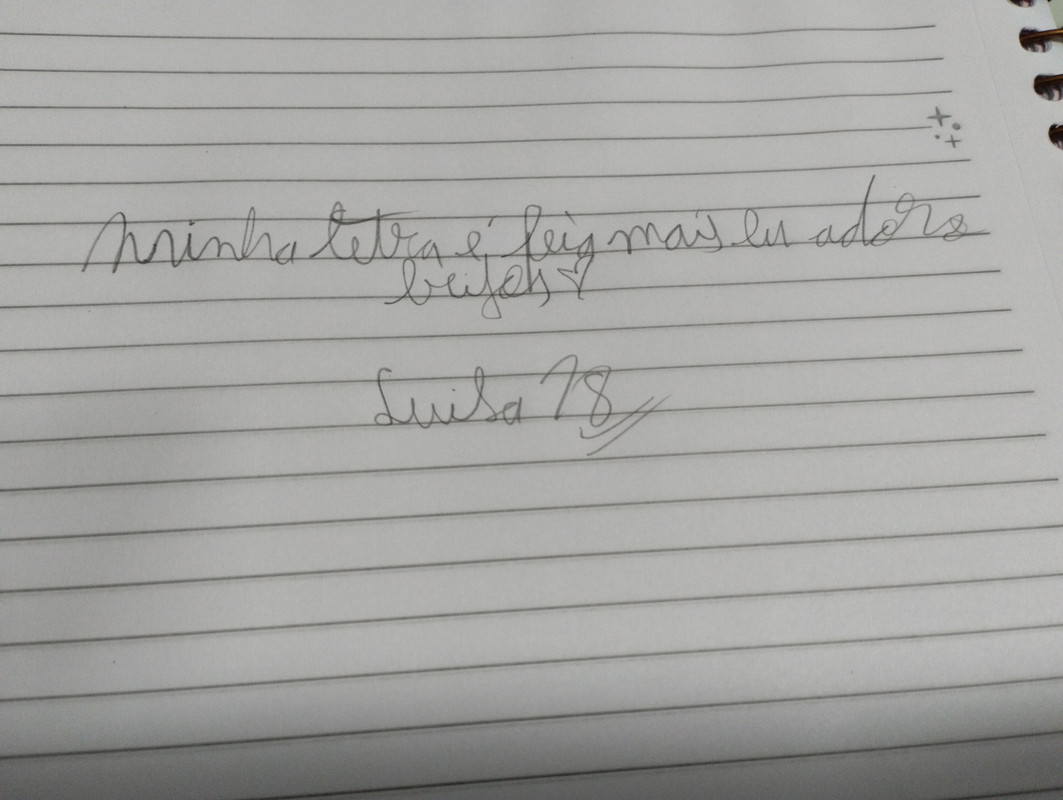 minha letra é feia mais eu adoro
beijos ♡
Luisa 18